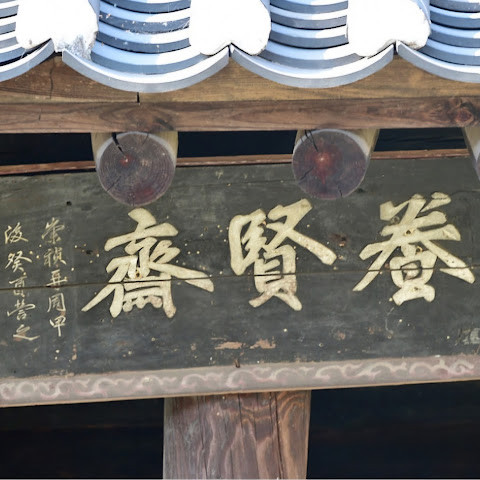 養賢齋
崇禎再周甲
後癸酉營之